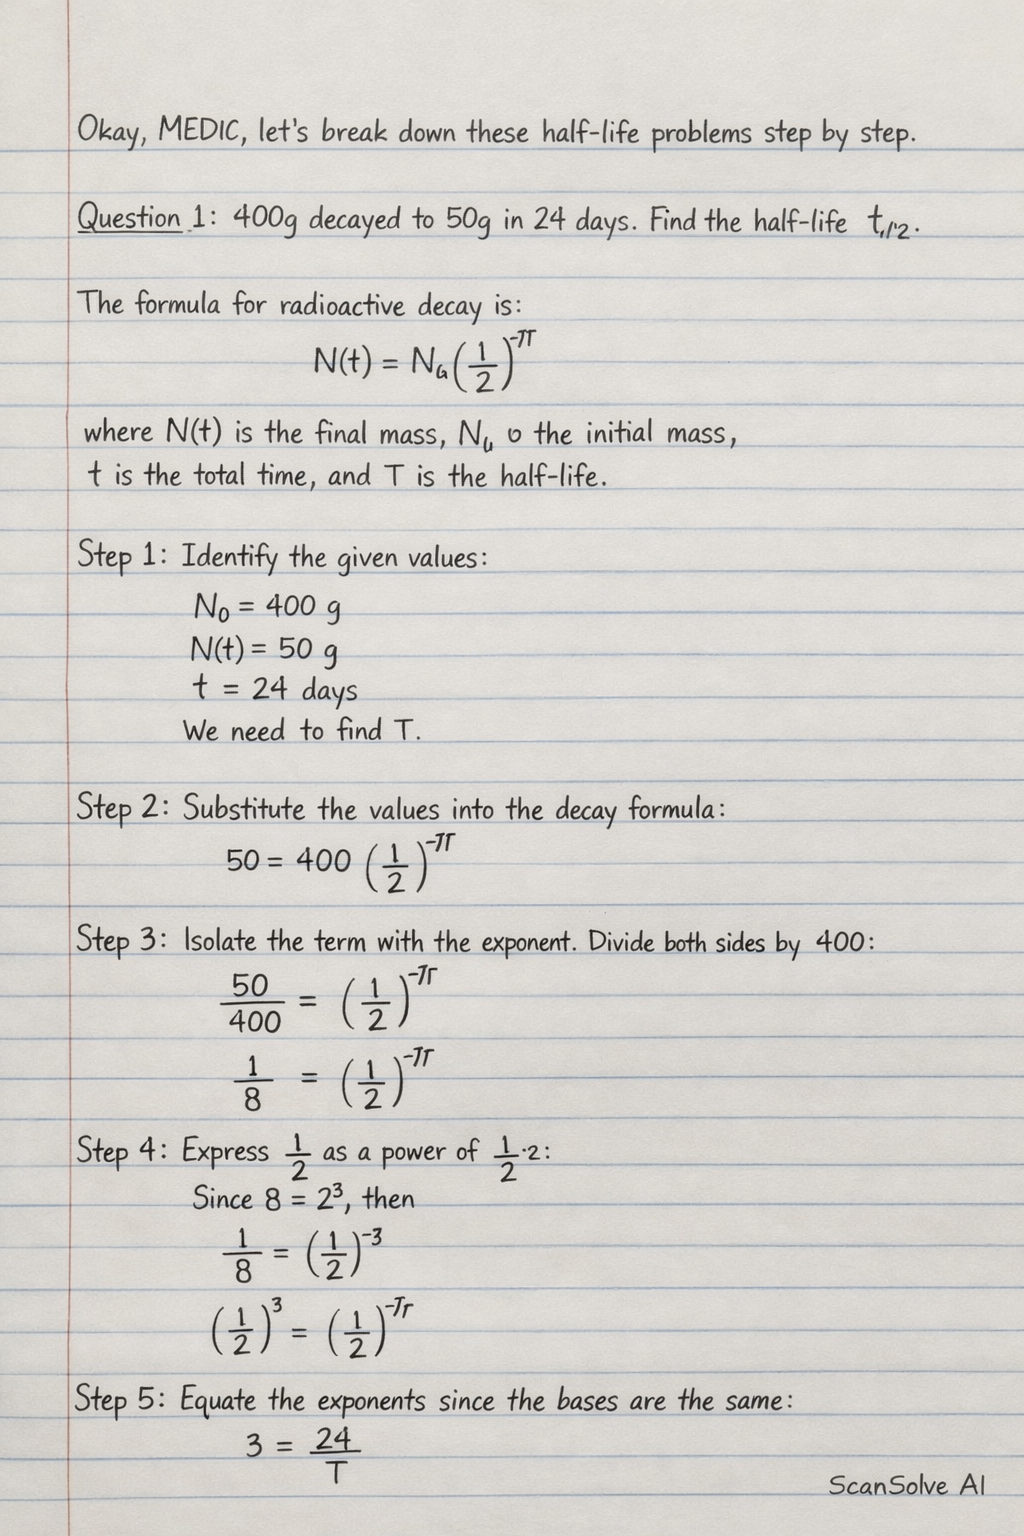 Okay, MEDIC, let's break down these half-life problems step by step.
Question 1: 400g decayed to 50g in 24 days. Find the half-life t₁/₂.
The formula for radioactive decay is:
N(t) = N (1/2)
where N(t) is the final mass, N o the initial mass,
t is the total time, and T is the half-life.
Step 1: Identify the given values:
N₀ = 400 g
N(t) = 50 g
t = 24 days
We need to find T.
Step 2: Substitute the values into the decay formula:
50 = 400 (1/2)
Step 3: Isolate the term with the exponent. Divide both sides by 400:
50/400 = (1/2)
1/8 = (1/2)
Step 4: Express 1/2 as a power of 1/2·2:
Since 8 = 2³, then
1/8 = (1/2)⁻³
(1/2)³ = (1/2)
Step 5: Equate the exponents since the bases are the same:
3 = 24/T
ScanSolve AI